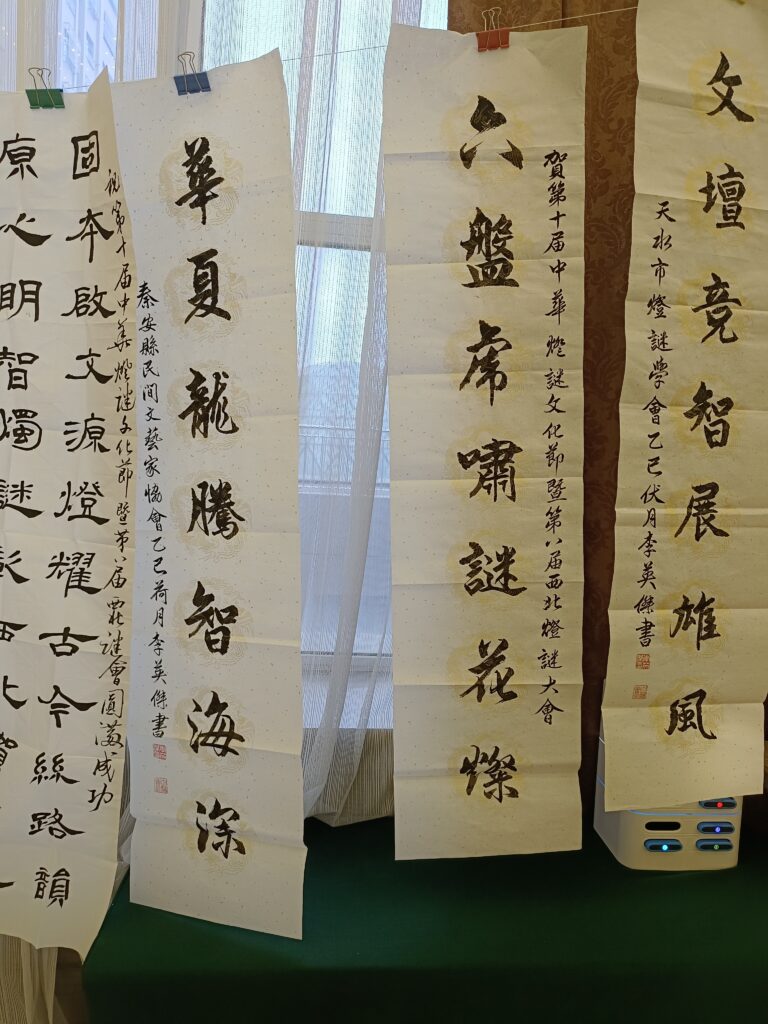 文壇竞智展雄風
天水市燈謎學會乙巳伏月李英傑書
賀第十届中華燈謎文化節暨第八届西北燈謎大會
六盤虎嘯謎花燦
華夏龍騰智海深
秦安縣民間文藝家協會乙巳荷月李英傑書
祝第十届中華燈謎文化節暨第八届西北謎會圓滿成功
固本啟文源燈耀古今絲路韻
心明智燭謎彰西北